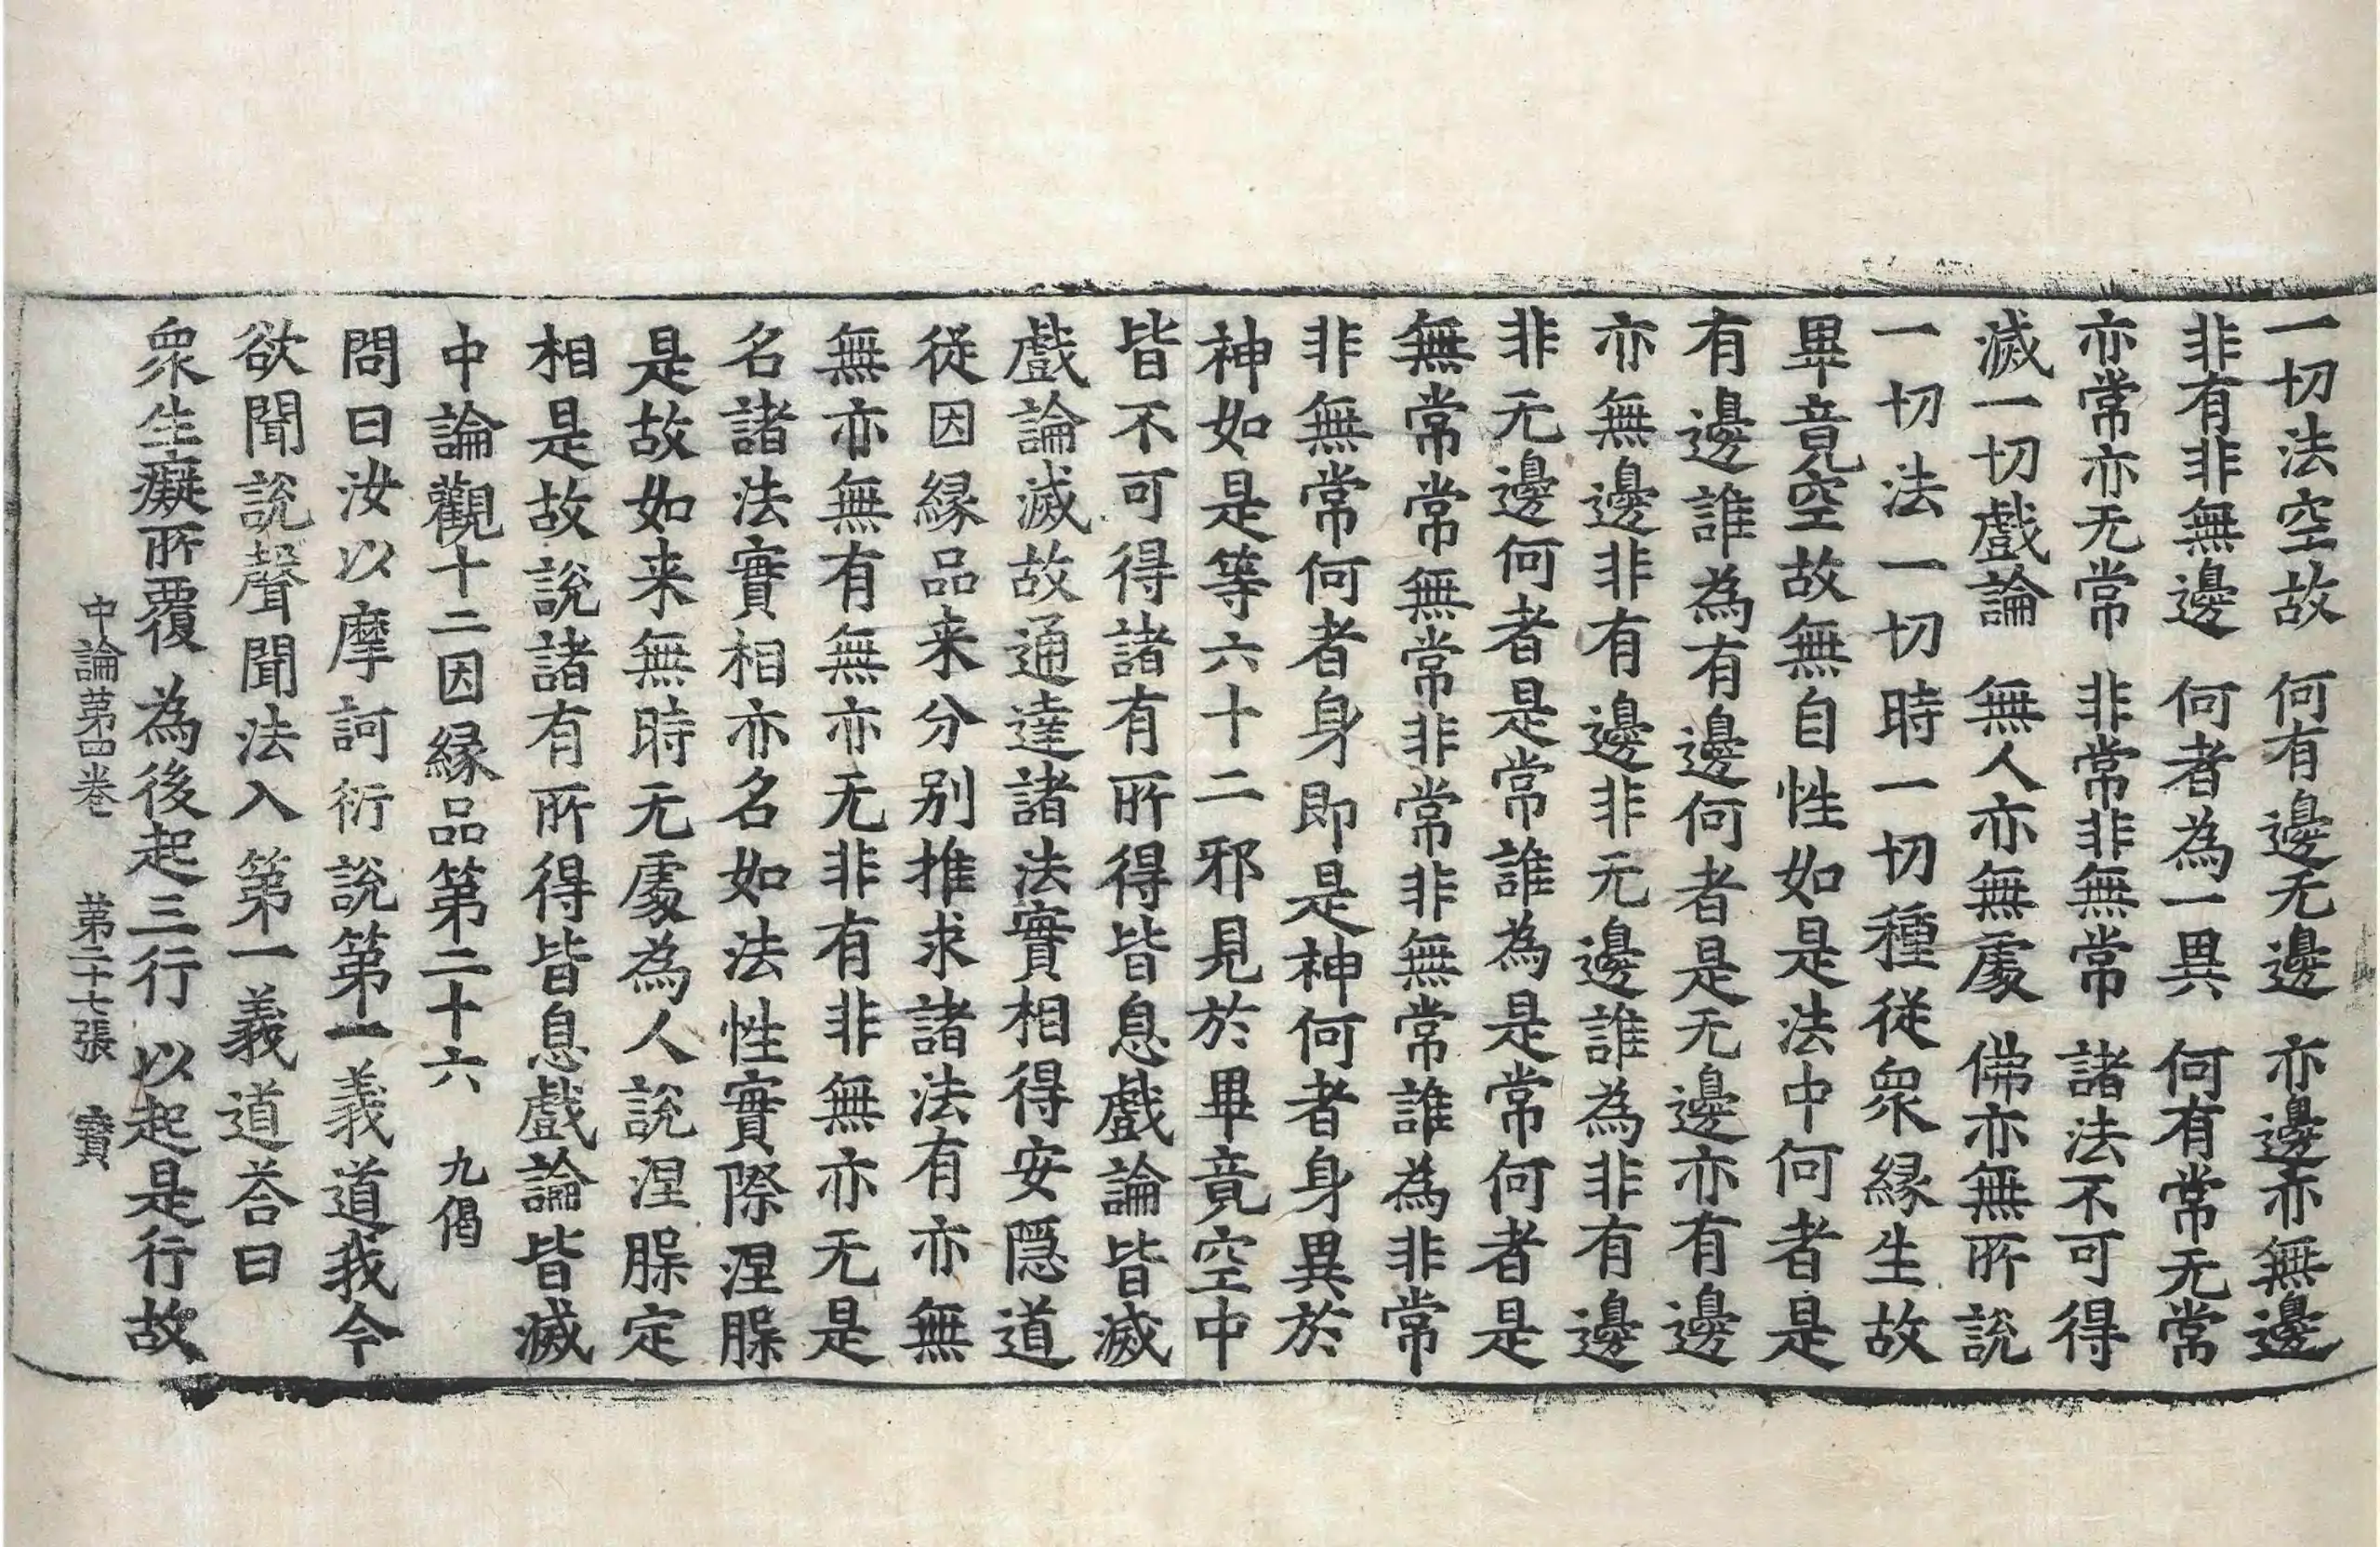 一切法空故　何有邊无邊　亦邊亦無邊
非有非無邊　何者為一異　何有常无常
亦常亦无常　非常非無常　諸法不可得
滅一切戲論　無人亦無處　佛亦無所說
一切法一切時一切種從衆緣生故
畢竟空故無自性如是法中何者是
有邊誰為有邊何者是无邊亦有邊
亦無邊非有邊非无邊誰為非有邊
非无邊何者是常誰為是常何者是
無常常無常非常非無常誰為非常
非無常何者身即是神何者身異於
神如是等六十二邪見於畢竟空中
皆不可得諸有所得皆息戲論皆滅
戲論滅故通達諸法實相得安隱道
從因緣品来分别推求諸法有亦無
無亦無有無亦无非有非無亦无是
名諸法實相亦名如法性實際涅槃
是故如来無時无處為人說涅槃定
相是故說諸有所得皆息戲論皆滅
中論觀十二因緣品第二十六　九偈
問曰汝以摩訶衍說第一義道我今
欲聞說聲聞法入第一義道荅曰
衆生癡所覆　為後起三行　以起是行故
中論第四卷　第二十七張　寶